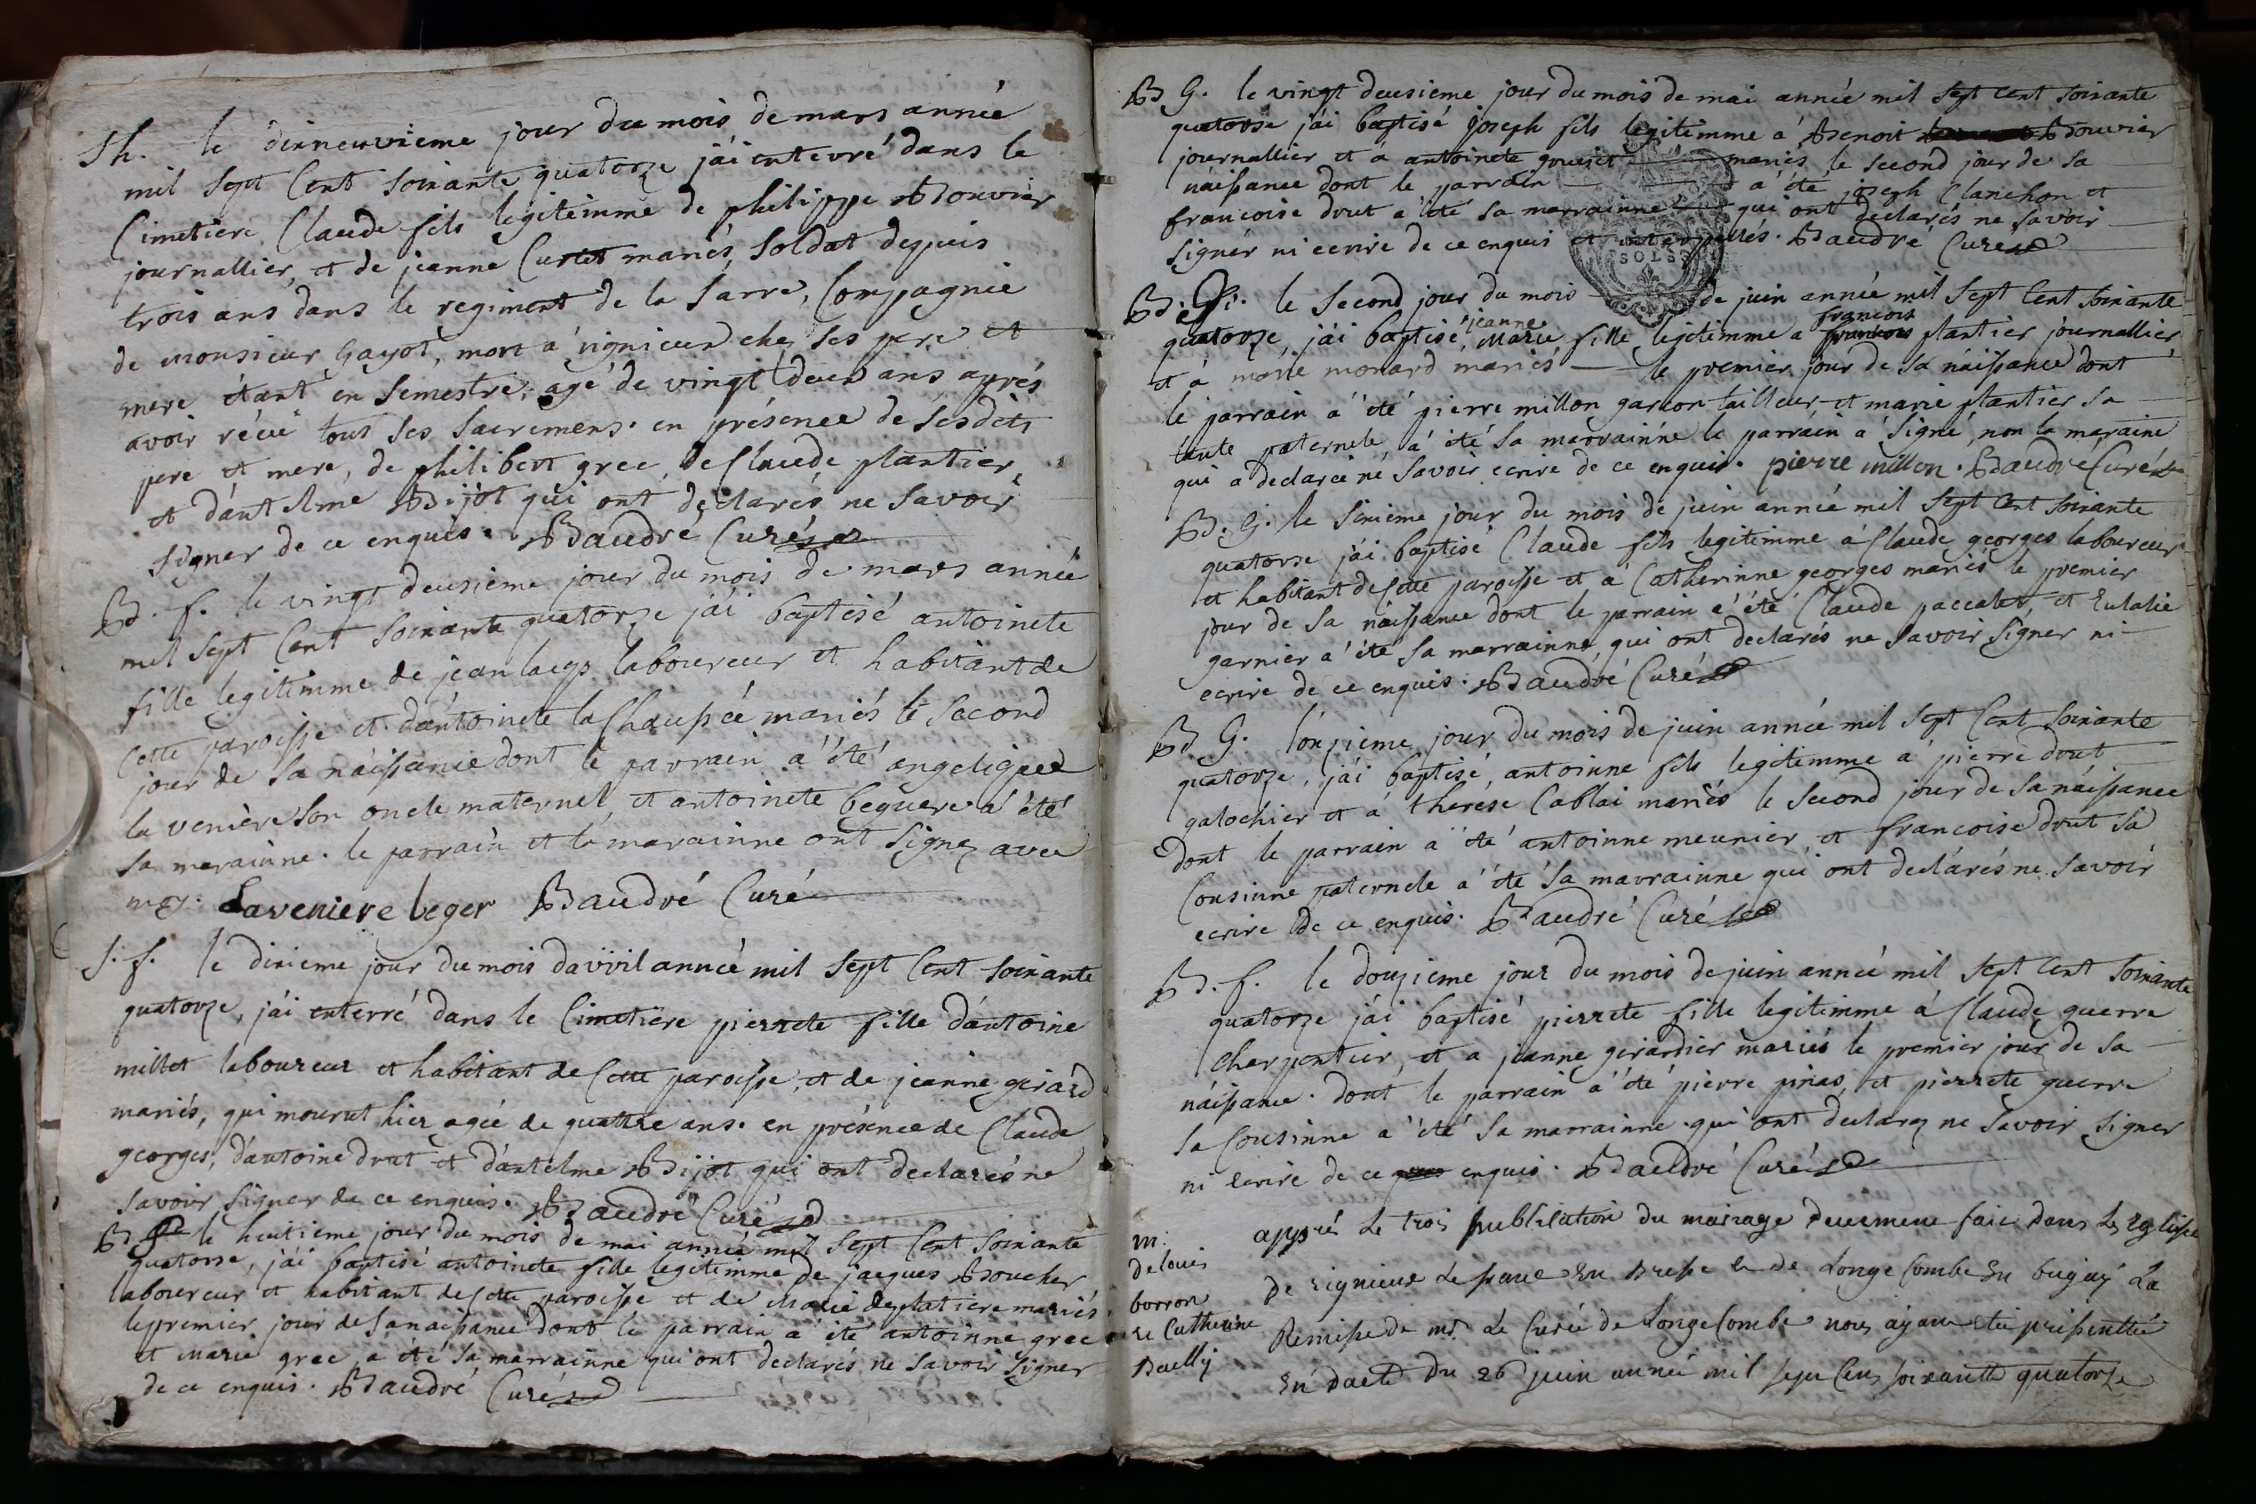 Sh. le dixneuvieme jour du mois de mars année
mil sept Cent soixante quatorze j'ái enterré dans le
Cimetiere Claude fils legitimme de philippe Bouvier
journallier, et de jeanne Curtet mariés, soldat depuis
trois ans dans le regiment de la Sarre, Compagnie
de monsieur Gayot, mort á rignieux chez ses pere et
mere étant en semestre, agé de vingt deux ans aprés
avoir réçu tous ses sacremens. en présence de sesdits
pere et mere, de philibert grec, de Claude plantier,
et d'antelme Bijot qui ont declarés ne savoir
signer de ce enquis. Baudré Curé
B. f. le vingt deusieme jour du mois de mars année
mil sept Cent soixante quatorze j'ái baptisé antoinete
fille legitimme de jean laeys laboureur et habitant de
Cette paroisse et d'antoinete la Chaussée mariés le second
jour de sa náissance dont le parrain á été angelique
la veniere son oncle maternel et antoinete beguere á été
sa marainne. le parrain et la marainne ont signez avec
moy. Laveniere leger Baudré Curé
S. f. le dixieme jour du mois davril année mil sept Cent soixante
quatorze, j'ái enterré dans le Cimetiere pierrete fille d'antoine
millet laboureur et habitant de Cette paroisse, et de jeanne girard
mariés, qui mourut hier agée de quattre ans. en présence de Claude
georges, d'antoine drut et d'antelme Bijot qui ont declarés ne
savoir signer de ce enquis. Baudré Curé
B. f. le huitieme jour du mois de mai année mil sept Cent soixante
quatorse, j'ái baptisé antoinete fille legitimme de jacques Boucher
laboureur et habitant de Cette paroisse et de Marie deplatiere mariés
le premier jour de sa naissance dont le parrain á été antoinne grec
et Marie grec a été sa marrainne qui ont declarés ne savoir signer
de ce enquis. Baudré Curé
B G. le vingt deusieme jour du mois de mai année mil sept Cent soixante
quatorse j'ái baptisé joseph fils legitimme á Benoit Bouvier
journallier et á antoinete goujet mariés le second jour de sa
náissance dont le parrain a été joseph Clanchon et
francoise drut a été sa marrainne qui ont declarés ne savoir
signer ni ecrire de ce enquis et interpellés. Baudré Curé
SOLS
B. fi. le second jour du mois de juin année mil sept Cent soixante
quatorze, j'ái baptisé, jeanne Marie fille legitimme a francois plantier journallier
et á marie monard mariés le premier jour de sa náissance dont
le parrain á été pierre millon garcon tailleur et marie plantier sa
tante paternele á été sa marrainne le parrain a signé, non la maraine
qui a declarée né savoir ecrire de ce enquis. pierre millon. Baudré Curé
B. G. le sixieme jour du mois de juin année mil sept Cent soixante
quatorse j'ái baptisé Claude fils legitimme á Claude georges laboureur
et habitant de Cette paroisse et á Catherinne georges mariés le premier
jour de sa náissance dont le parrain á été Claude paccalet, et Eulalie
garnier a été sa marrainne, qui ont declarés ne savoir signer ni
ecrire de ce enquis. Baudré Curé
B G. l'onzieme jour du mois de juin année mil sept Cent soixante
quatorze, j'ái baptisé, antoinne fils legitimme á pierre drut
galochier et á therése Cablai mariés le second jour de sa náissance
dont le parrain a été antoinne meunier, et francoise drut sa
Cousinne paternele á été sa marrainne qui ont declárés ne savoir
ecrire de ce enquis. Baudré Curé
B. f. le douzieme jour du mois de juin année mil sept Cent soixante
quatorze j'ái baptisé pierrete fille legitimme á Claude guerre
Charpentier, et a jeanne girardier mariés le premier jour de sa
náissance. dont le parrain á été pierre pinas, et pierrete guerre
sa Cousinne a été sa marrainne qui ont declarez ne savoir signer
ni ecrire de ce enquis. Baudré Curé
m: de louis borron et Catherine Bailly
apprés Le trois publication du mairage deuemeue faie dans Les Eglisse
de rignieux Le franc En Bresse et de Longe Combe En bugey La
Remisse de mr. Le Curée de Longe Combe nous ayant été prissenttée
En Daete Du 26 juin année mil sept Cens soixantte quatorze